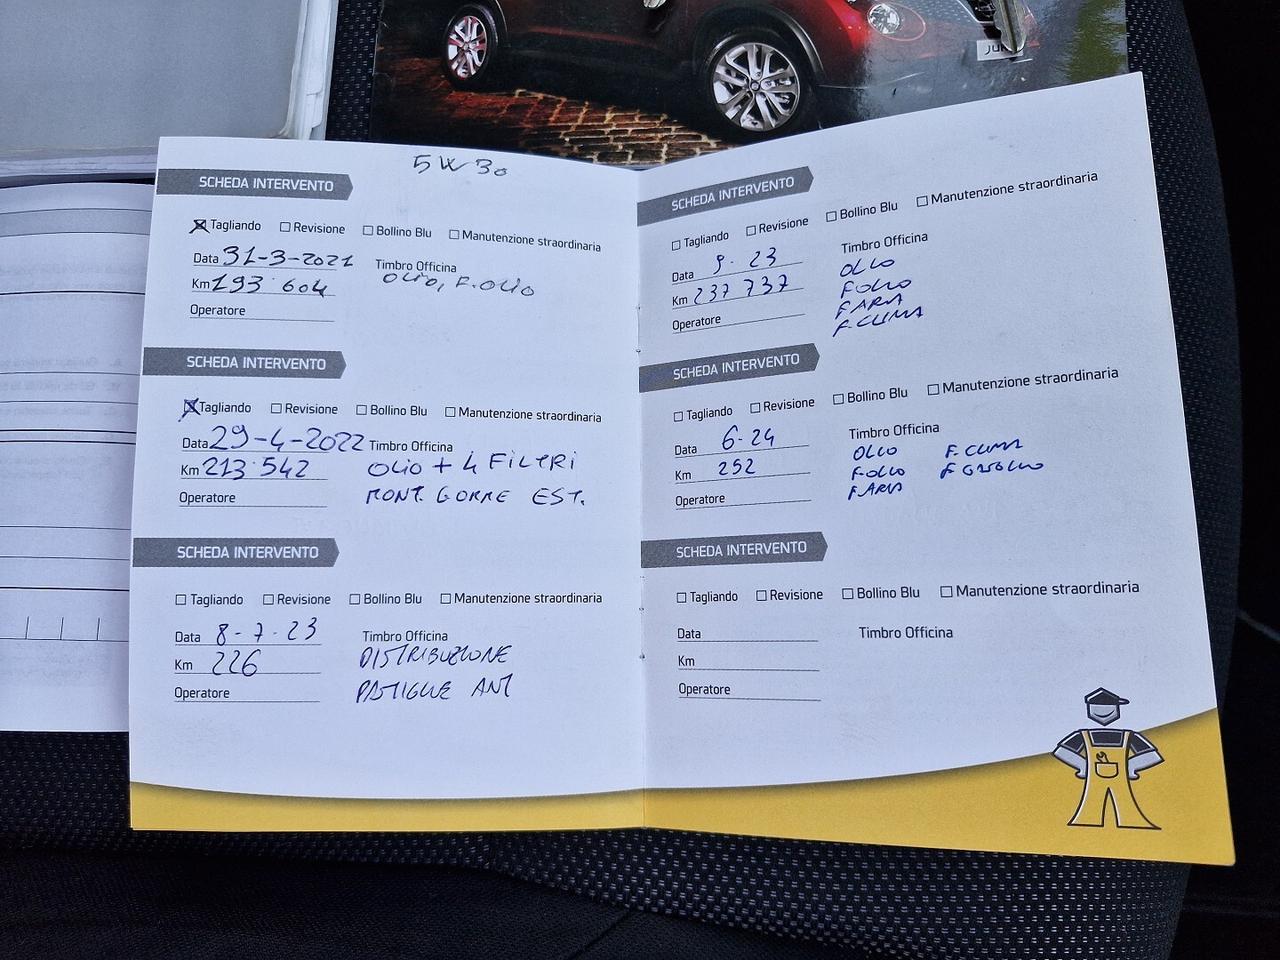 5W30
SCHEDA INTERVENTO
Tagliando Revisione Bollino Blu Manutenzione straordinaria
Data 31-3-2021 Timbro Officina
Km 193·604 OLIO, F.OLIO
Operatore
SCHEDA INTERVENTO
Tagliando Revisione Bollino Blu Manutenzione straordinaria
Data 29-4-2022 Timbro Officina
Km 213·542 OLIO + 4 FILTRI
Operatore MONT. GOMME EST.
SCHEDA INTERVENTO
Tagliando Revisione Bollino Blu Manutenzione straordinaria
Data 8-7-23 Timbro Officina
Km 226 DISTRIBUZIONE
Operatore PASTIGLIE ANT
SCHEDA INTERVENTO
Tagliando Revisione Bollino Blu Manutenzione straordinaria
Data 9-23 Timbro Officina
Km 237 737 OLIO
Operatore FOLIO
FARIA
F.CLIMA
SCHEDA INTERVENTO
Tagliando Revisione Bollino Blu Manutenzione straordinaria
Data 6-24 Timbro Officina
Km 252 OLIO F.CLIMA
Operatore FOLIO F GASOLIO
FARIA
SCHEDA INTERVENTO
Tagliando Revisione Bollino Blu Manutenzione straordinaria
Data Timbro Officina
Km
Operatore